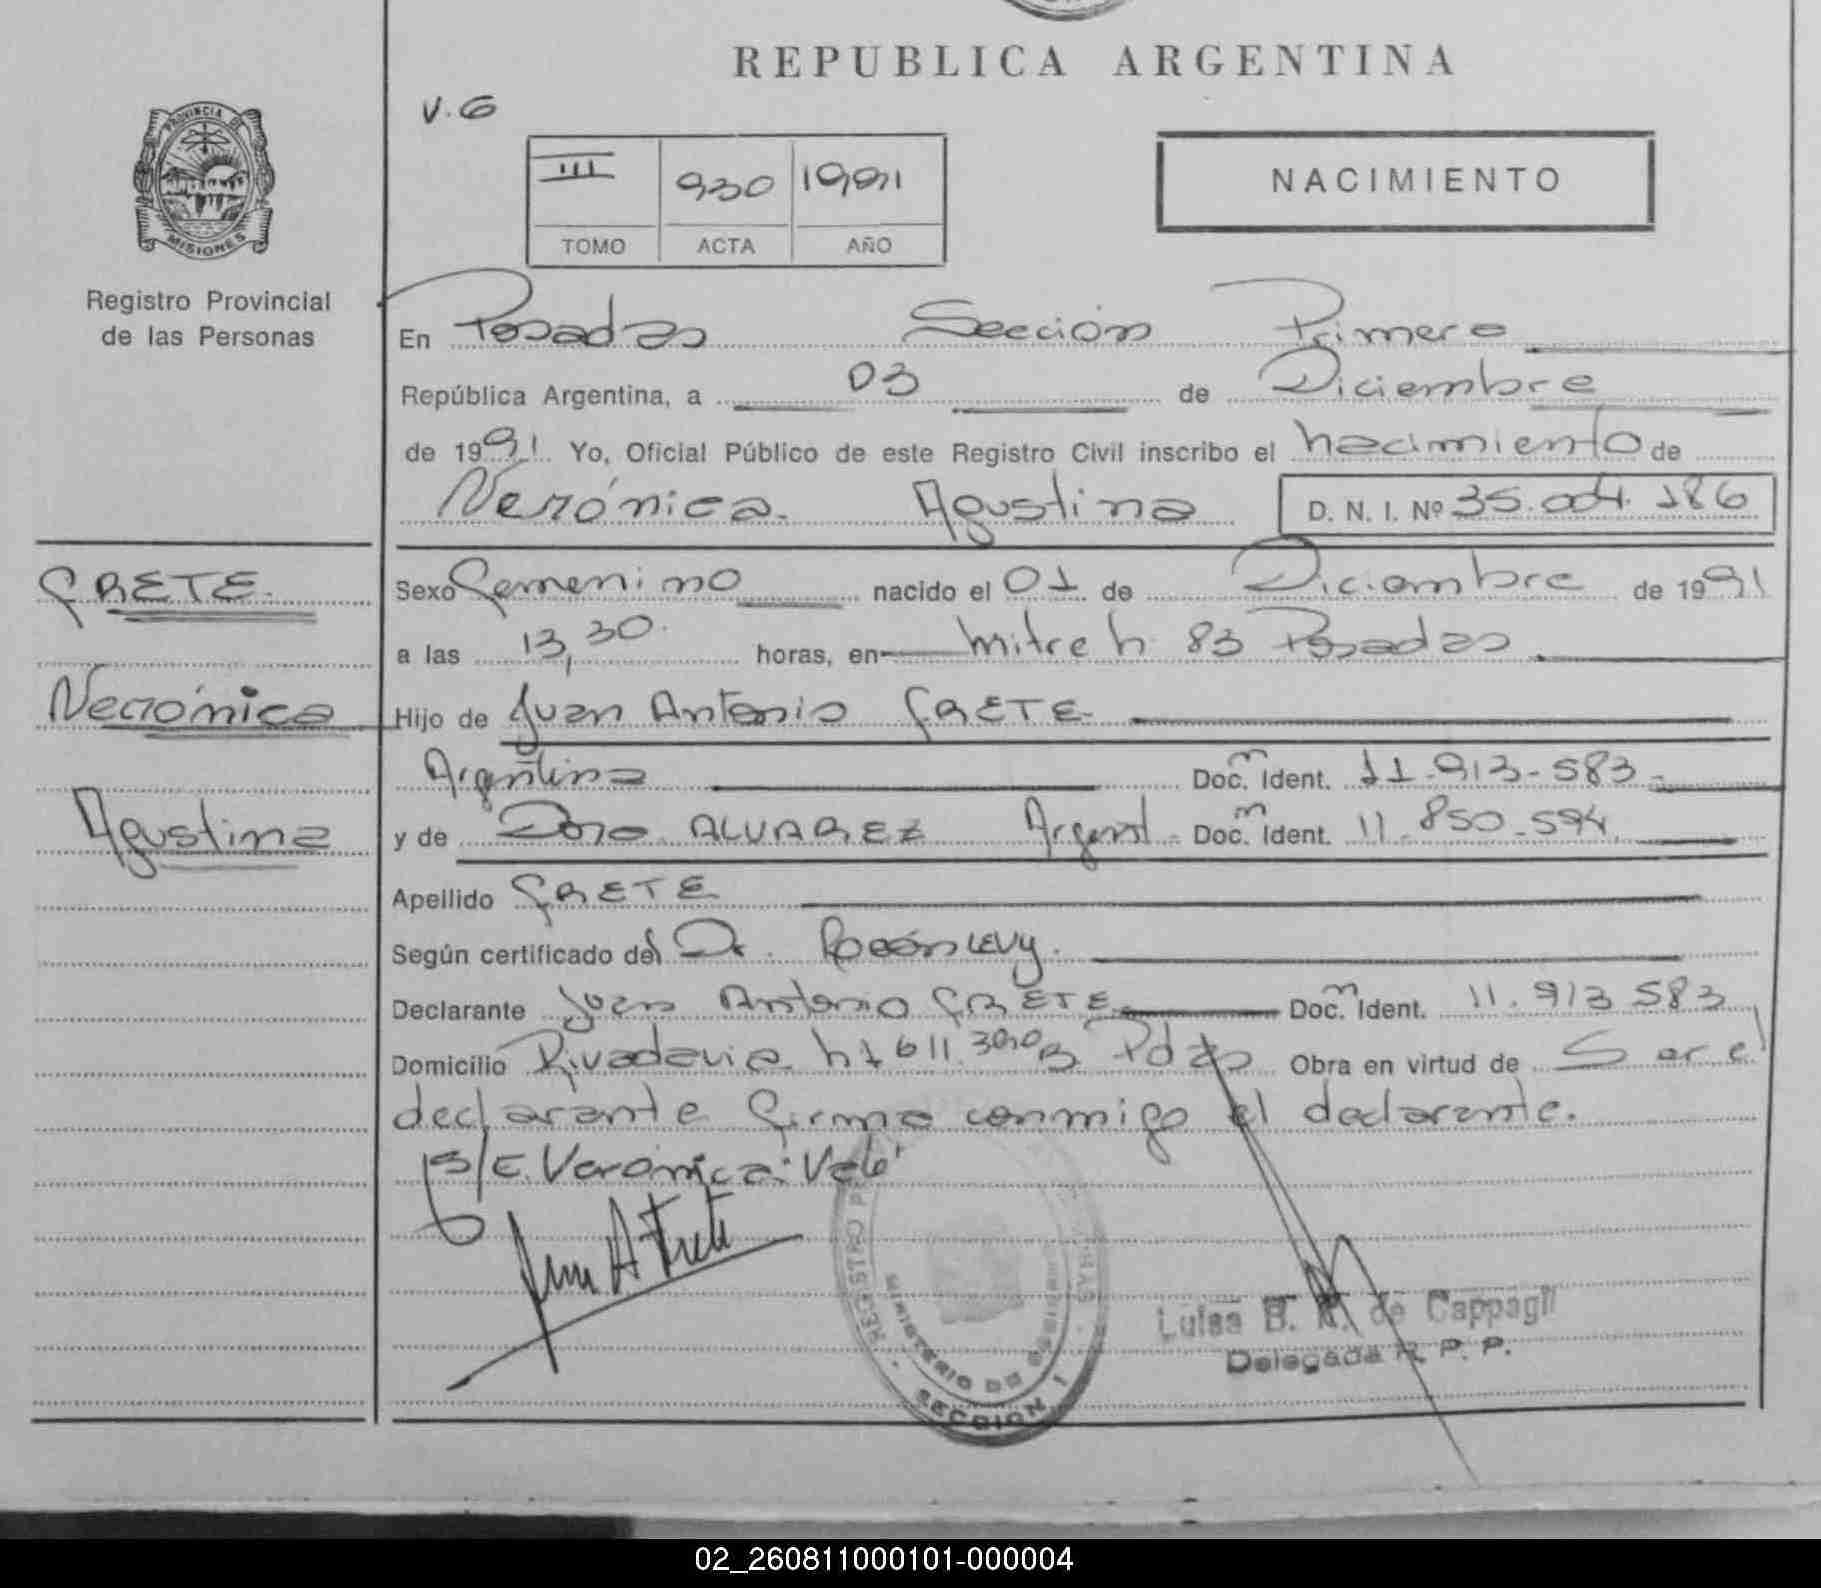 REPUBLICA ARGENTINA
V.G
PROVINCIA DE MISIONES
III 930 1991
TOMO ACTA AÑO
NACIMIENTO
Registro Provincial
de las Personas
En Posadas Sección Primera
República Argentina, a 03 de Diciembre
de 1991 Yo, Oficial Público de este Registro Civil inscribo el nacimiento de
Verónica Agustina D. N. I. Nº 35.004.186
FRETE
Sexo femenino nacido el 01 de Diciembre de 1991
a las 13,30 horas, en Mitre h 83 Posadas
Verónica
Hijo de Juan Antonio FRETE
Argentina Doc. Ident. 11-913-583
Agustina
y de Dora ALVAREZ Argent Doc. Ident. 11-850-594
Apellido FRETE
Según certificado del Dr. LEVY
Declarante Juan Antonio FRETE Doc. Ident. 11.913 583
Domicilio Rivadavia Pdas Obra en virtud de Ser el
declarante firma conmigo el declarante.
S/E. Verónica: Vale
Juan A Frete
REGISTRO
MINISTERIO DE
SECCION I
Luisa B. de Cappagli
Delegada R. P. P.
02_260811000101-000004